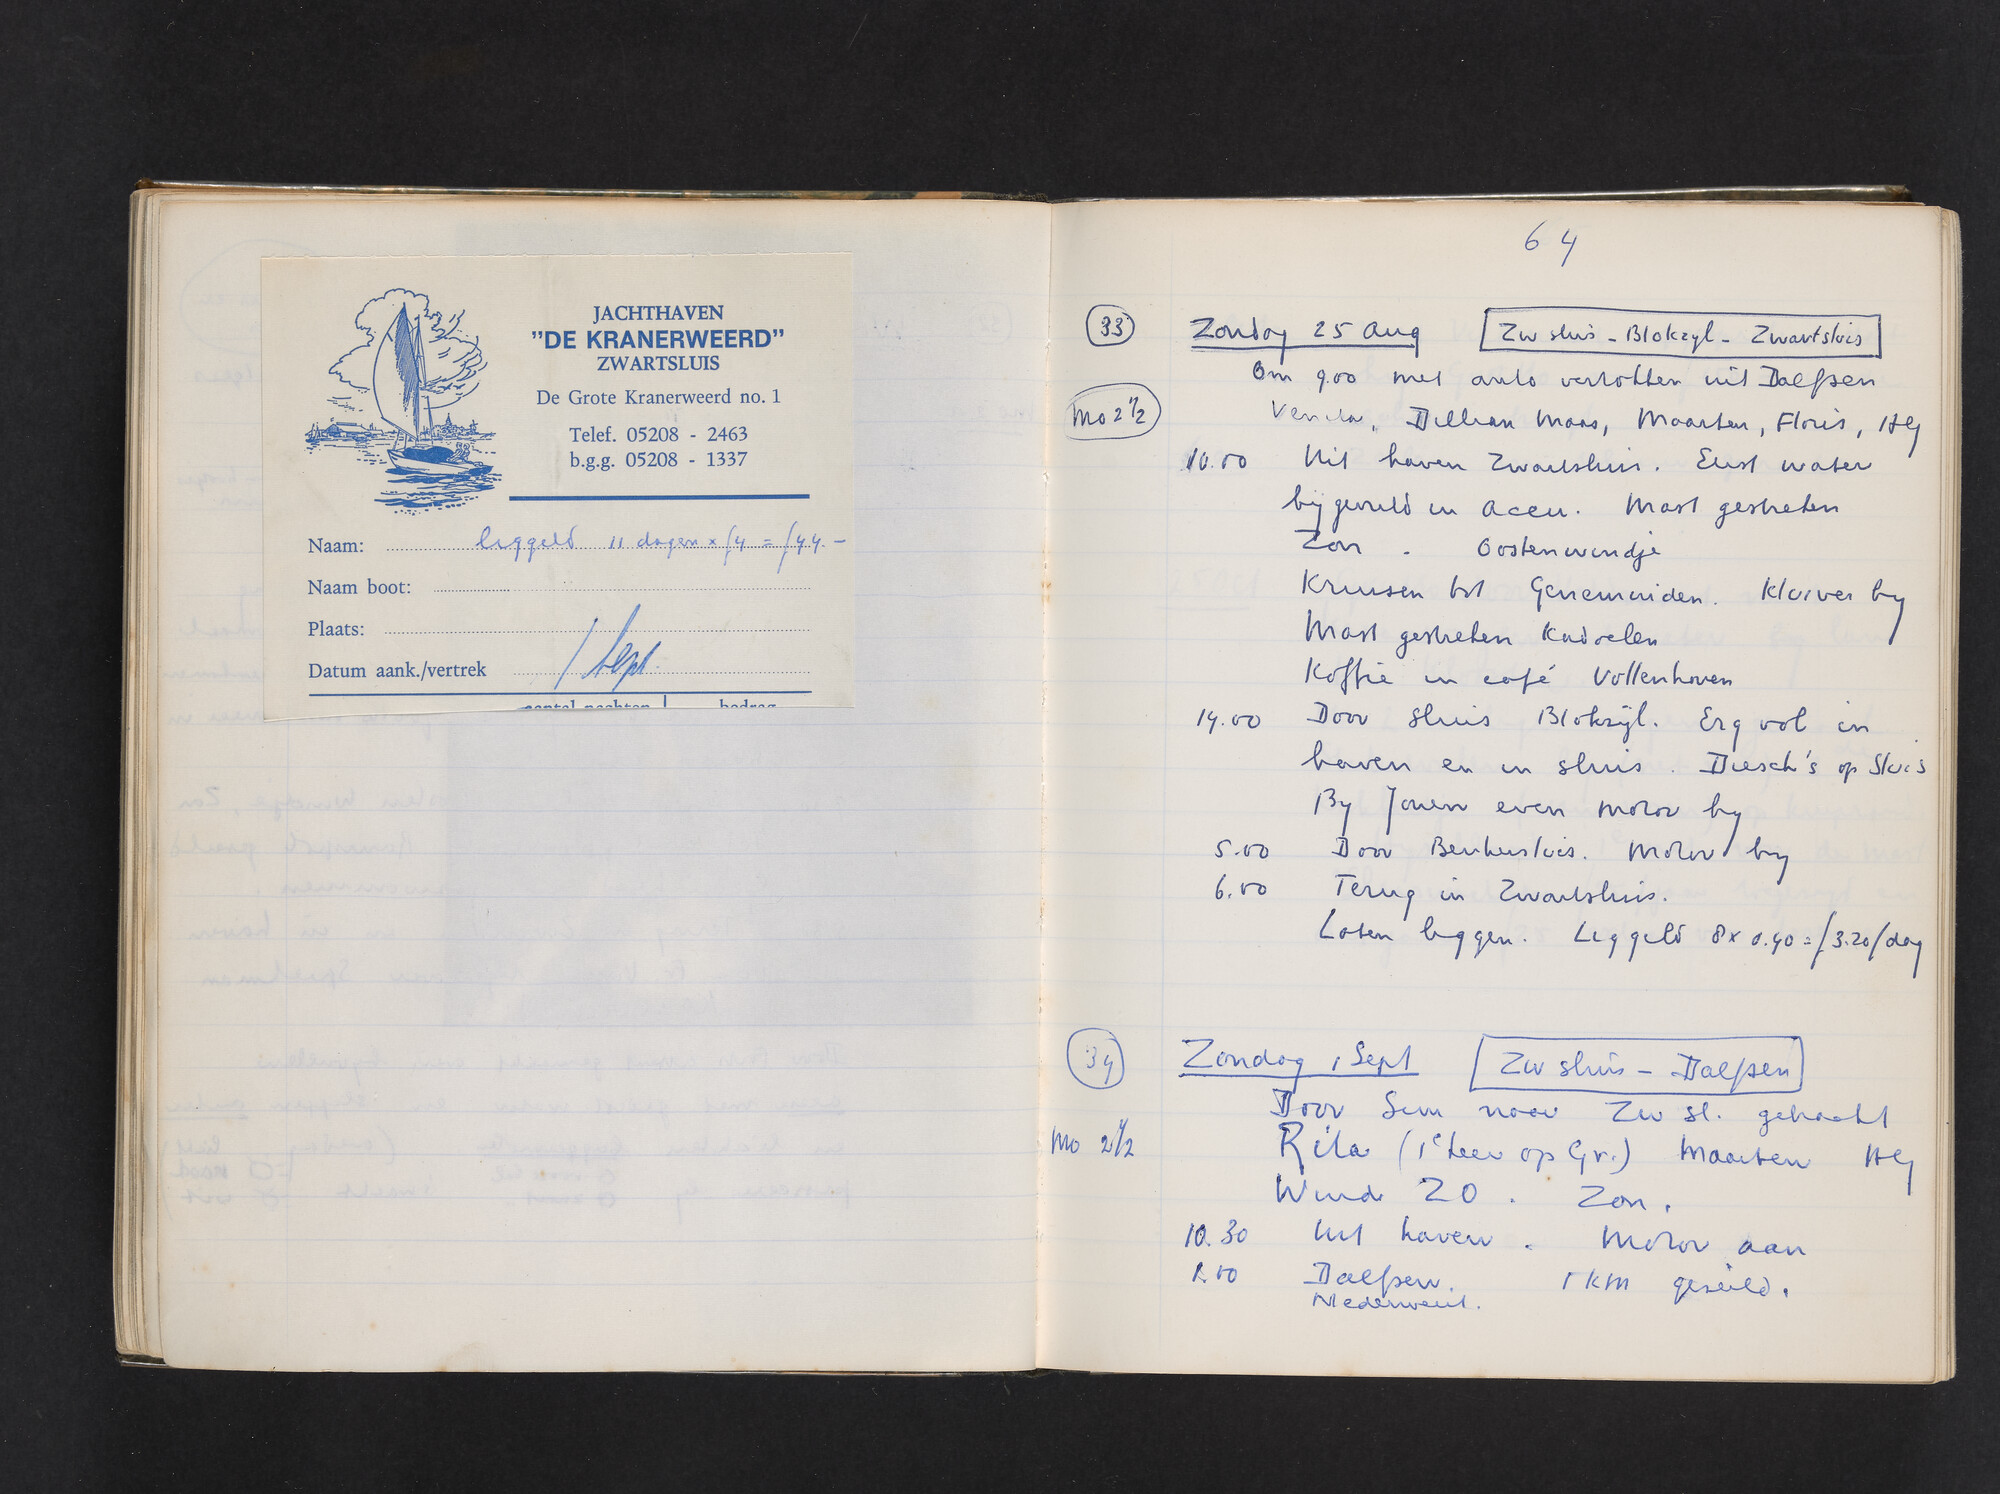 JACHTHAVEN
"DE KRANERWEERD"
ZWARTSLUIS
De Grote Kranerweerd no. 1
Telef. 05208 - 2463
b.g.g. 05208 - 1337
Naam: liggeld 11 dagen x f4 = f44.-
Naam boot:
Plaats:
Datum aank./vertrek 1 Sept
aantal nachten bedrag
64
33 Zondag 25 Aug Zw sluis - Blokzyl - Zwartsluis
Om 9.00 met auto vertokken uit Dalfsen
Mo 2 1/2 Maas, Maarten, Floris, HG
10.00 Uit haven Zwartsluis. Eerst water
bijgevuld in accu. Mast gestreken
Zon. Oostenwindje
Kruisen tot Genemuiden. Kluiver by
Mast gestreken Kadoelen
Koffie in café Vollenhoven
14.00 Door sluis Blokzijl. Erg vol in
haven en in sluis. Diesch's op Sluis
By Jonen even motor by
5.00 Door Beukersluis. Motor by
6.00 Terug in Zwartsluis.
Laten liggen. Liggeld 8 x 0.40 = f3.20/dag
34 Zondag 1 Sept Zw sluis - Dalfsen
Door Sim naar Zw sl. gebracht
Mo 2 1/2 Rita (1e keer op Gr.) Maarten HG
Wind ZO. Zon.
10.30 Uit haven. Motor aan
1.00 Dalfsen. 1 KM gezeild.